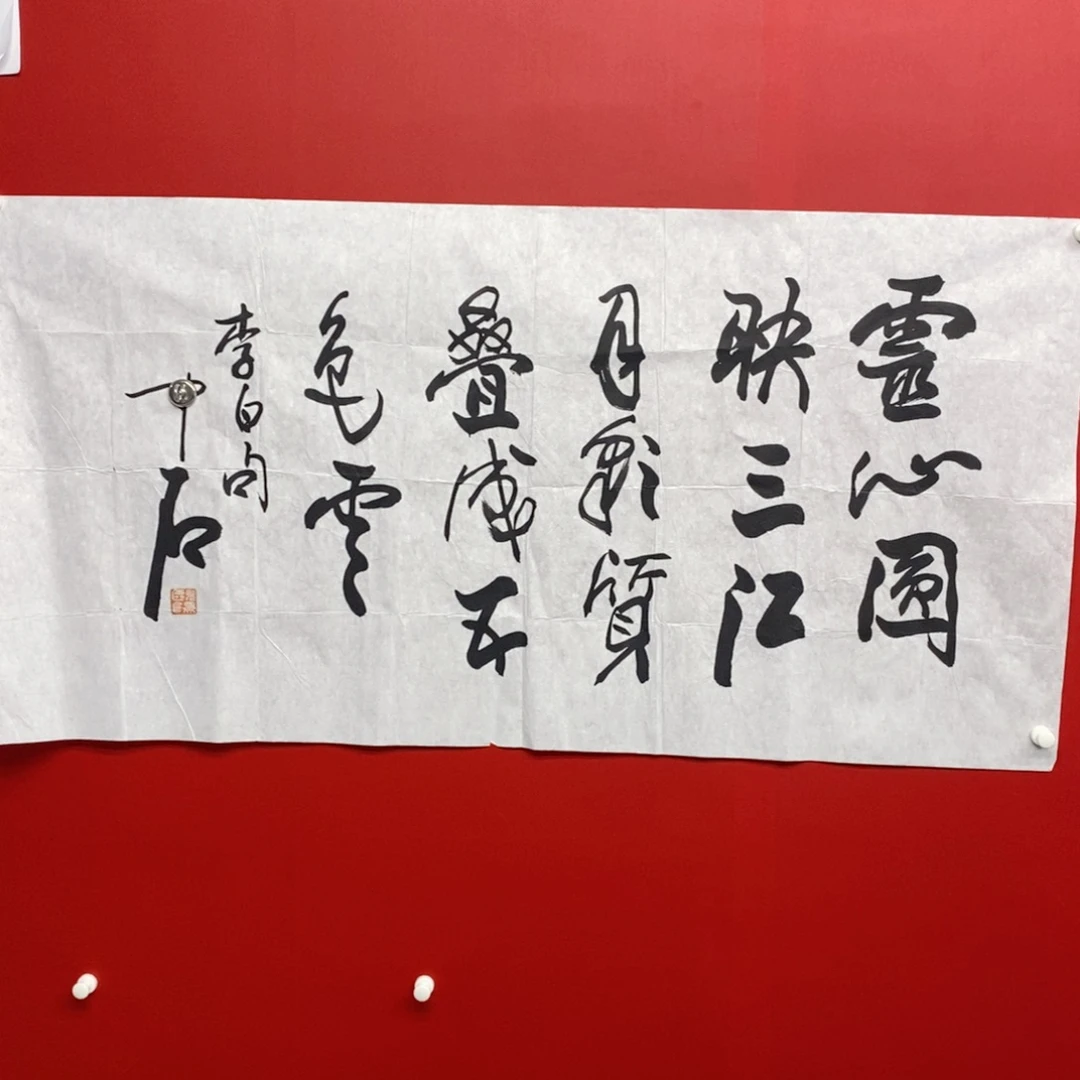 靈心圓
映三江
月彩質
疊成五
色雲
李白句
石